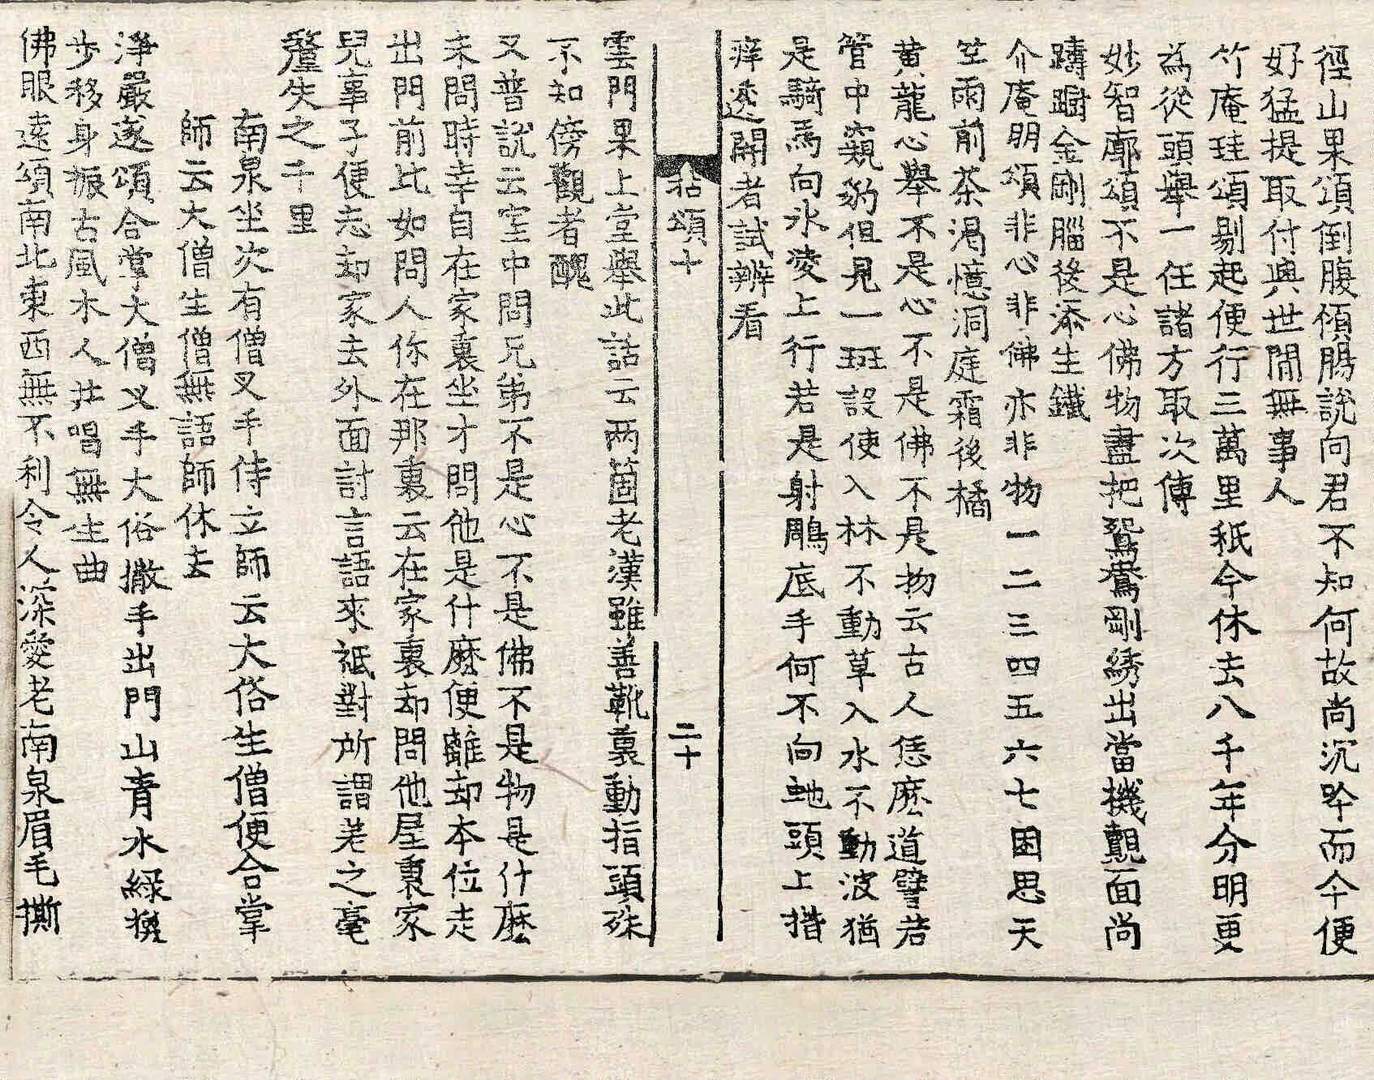 徑山果頌倒腹傾腸說向君不知何故尚沉吟而今便
好猛提取付與世間無事人
竹庵珪頌剔起便行三萬里秖今休去八千年分明更
為從頭舉一任諸方取次傳
妙智廓頌不是心佛物盡把鴛鴦剛綉出當機覿面尚
躊躕金剛腦後添生鐵
介庵朋頌非心非佛亦非物一二三四五六七困思天
竺雨前茶渴憶洞庭霜後橘
黃龍心舉不是心不是佛不是物云古人恁麽道譬若
管中窺豹但見一班設使入林不動草入水不動波猶
是騎馬向氷凌上行若是射鵰底手何不向虵頭上揩
痒透開者試辨看
拈頌十
二十
雲門果上堂舉此話云两箇老漢雖善靴裏動指頭殊
不知傍觀者醜
又普說云室中問兄弟不是心不是佛不是物是什麽
未問時幸自在家裏坐才問他是什麽便離却本位走
出門前比如問人你在那裏云在家裏却問他屋裏家
兒事子便忘却家去外面討言語來祗對所謂差之毫
釐失之千里
南泉坐次有僧叉手侍立師云大俗生僧便合掌
師云大僧生僧無語師休去
淨嚴遂頌合掌大僧叉手大俗撒手出門山青水緑擬
步移身振古風木人共唱無生曲
佛眼遠頌南北東西無不利令人深愛老南泉眉毛撕